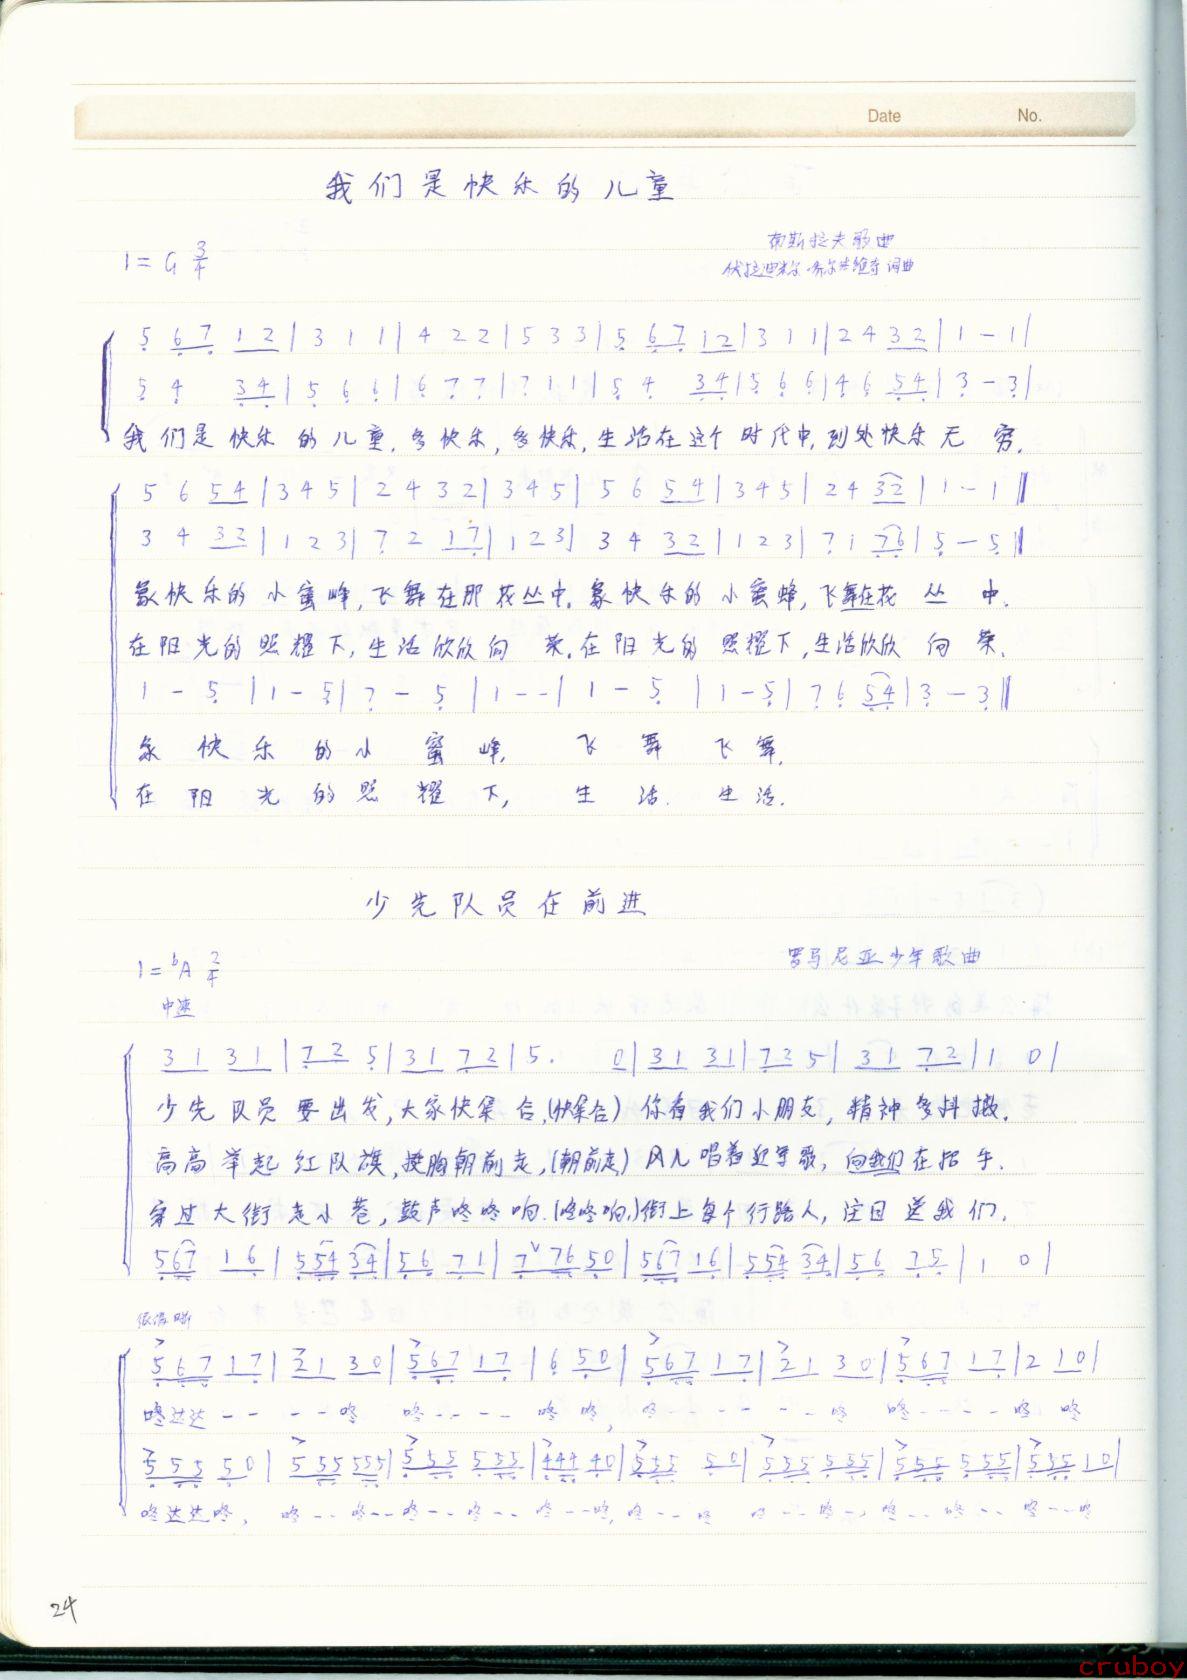 Date No.
我们是快乐的儿童
1=G 3/4
斯拉夫歌曲
伏拉迪米尔 词曲
5 6 7 1 2 | 3 1 1 | 4 2 2 | 5 3 3 | 5 6 7 1 2 | 3 1 1 | 2 4 3 2 | 1 - 1 |
5 4 3 4 | 5 6 6 | 6 7 7 | 7 1 1 | 5 4 3 4 | 5 6 6 | 4 6 5 4 | 3 - 3 |
我们是快乐的儿童,多快乐,多快乐,生活在这个时代中,到处快乐无穷.
5 6 5 4 | 3 4 5 | 2 4 3 2 | 3 4 5 | 5 6 5 4 | 3 4 5 | 2 4 3 2 | 1 - 1 ‖
3 4 3 2 | 1 2 3 | 7 2 1 7 | 1 2 3 | 3 4 3 2 | 1 2 3 | 7 1 7 6 | 5 - 5 ‖
象快乐的小蜜峰,飞舞在那花丛中.象快乐的小蜜蜂,飞舞在花丛中.
在阳光的照耀下,生活欣欣向荣.在阳光的照耀下,生活欣欣向荣.
1 - 5 | 1 - 5 | 7 - 5 | 1 - - | 1 - 5 | 1 - 5 | 7 6 5 4 | 3 - 3 ‖
象快乐的小蜜峰,飞舞飞舞.
在阳光的照耀下,生活.生活.
少先队员在前进
1=bA 2/4
罗马尼亚少年歌曲
中速
3 1 3 1 | 7 2 5 | 3 1 7 2 | 5. 0 | 3 1 3 1 | 7 2 5 | 3 1 7 2 | 1 0 |
少先队员要出发,大家快集合,(快集合)你看我们小朋友,精神多抖擞.
高高举起红队旗,挺胸朝前走,(朝前走)风儿唱着进军歌,向我们在招手.
穿过大街走小巷,鼓声咚咚响.(咚咚响,)街上每个行路人,注目送我们.
5 6 7 1 6 | 5 5 4 3 4 | 5 6 7 1 | 7 ∨ 7 6 5 0 | 5 6 7 1 6 | 5 5 4 3 4 | 5 6 7 5 | 1 0 |
5 6 7 1 7 | 2 1 3 0 | 5 6 7 1 7 | 6 5 0 | 5 6 7 1 7 | 2 1 3 0 | 5 6 7 1 7 | 2 1 0 |
咚达达 - - - - 咚 咚 - - - - 咚 咚, 咚 - - - - - - 咚 咚 - - - - 咚 咚
5 5 5 5 0 | 5 5 5 5 5 5 | 5 5 5 5 5 5 | 4 4 4 4 0 | 5 5 5 5 0 | 5 5 5 5 5 5 | 5 5 5 5 5 5 | 5 5 5 1 0 |
咚达达咚, 咚 - - 咚 - - 咚 - - 咚 - - 咚 - - 咚, 咚 - - 咚 咚 - - 咚 - - 咚 - - 咚 - - 咚 - - 咚
24
cruboy